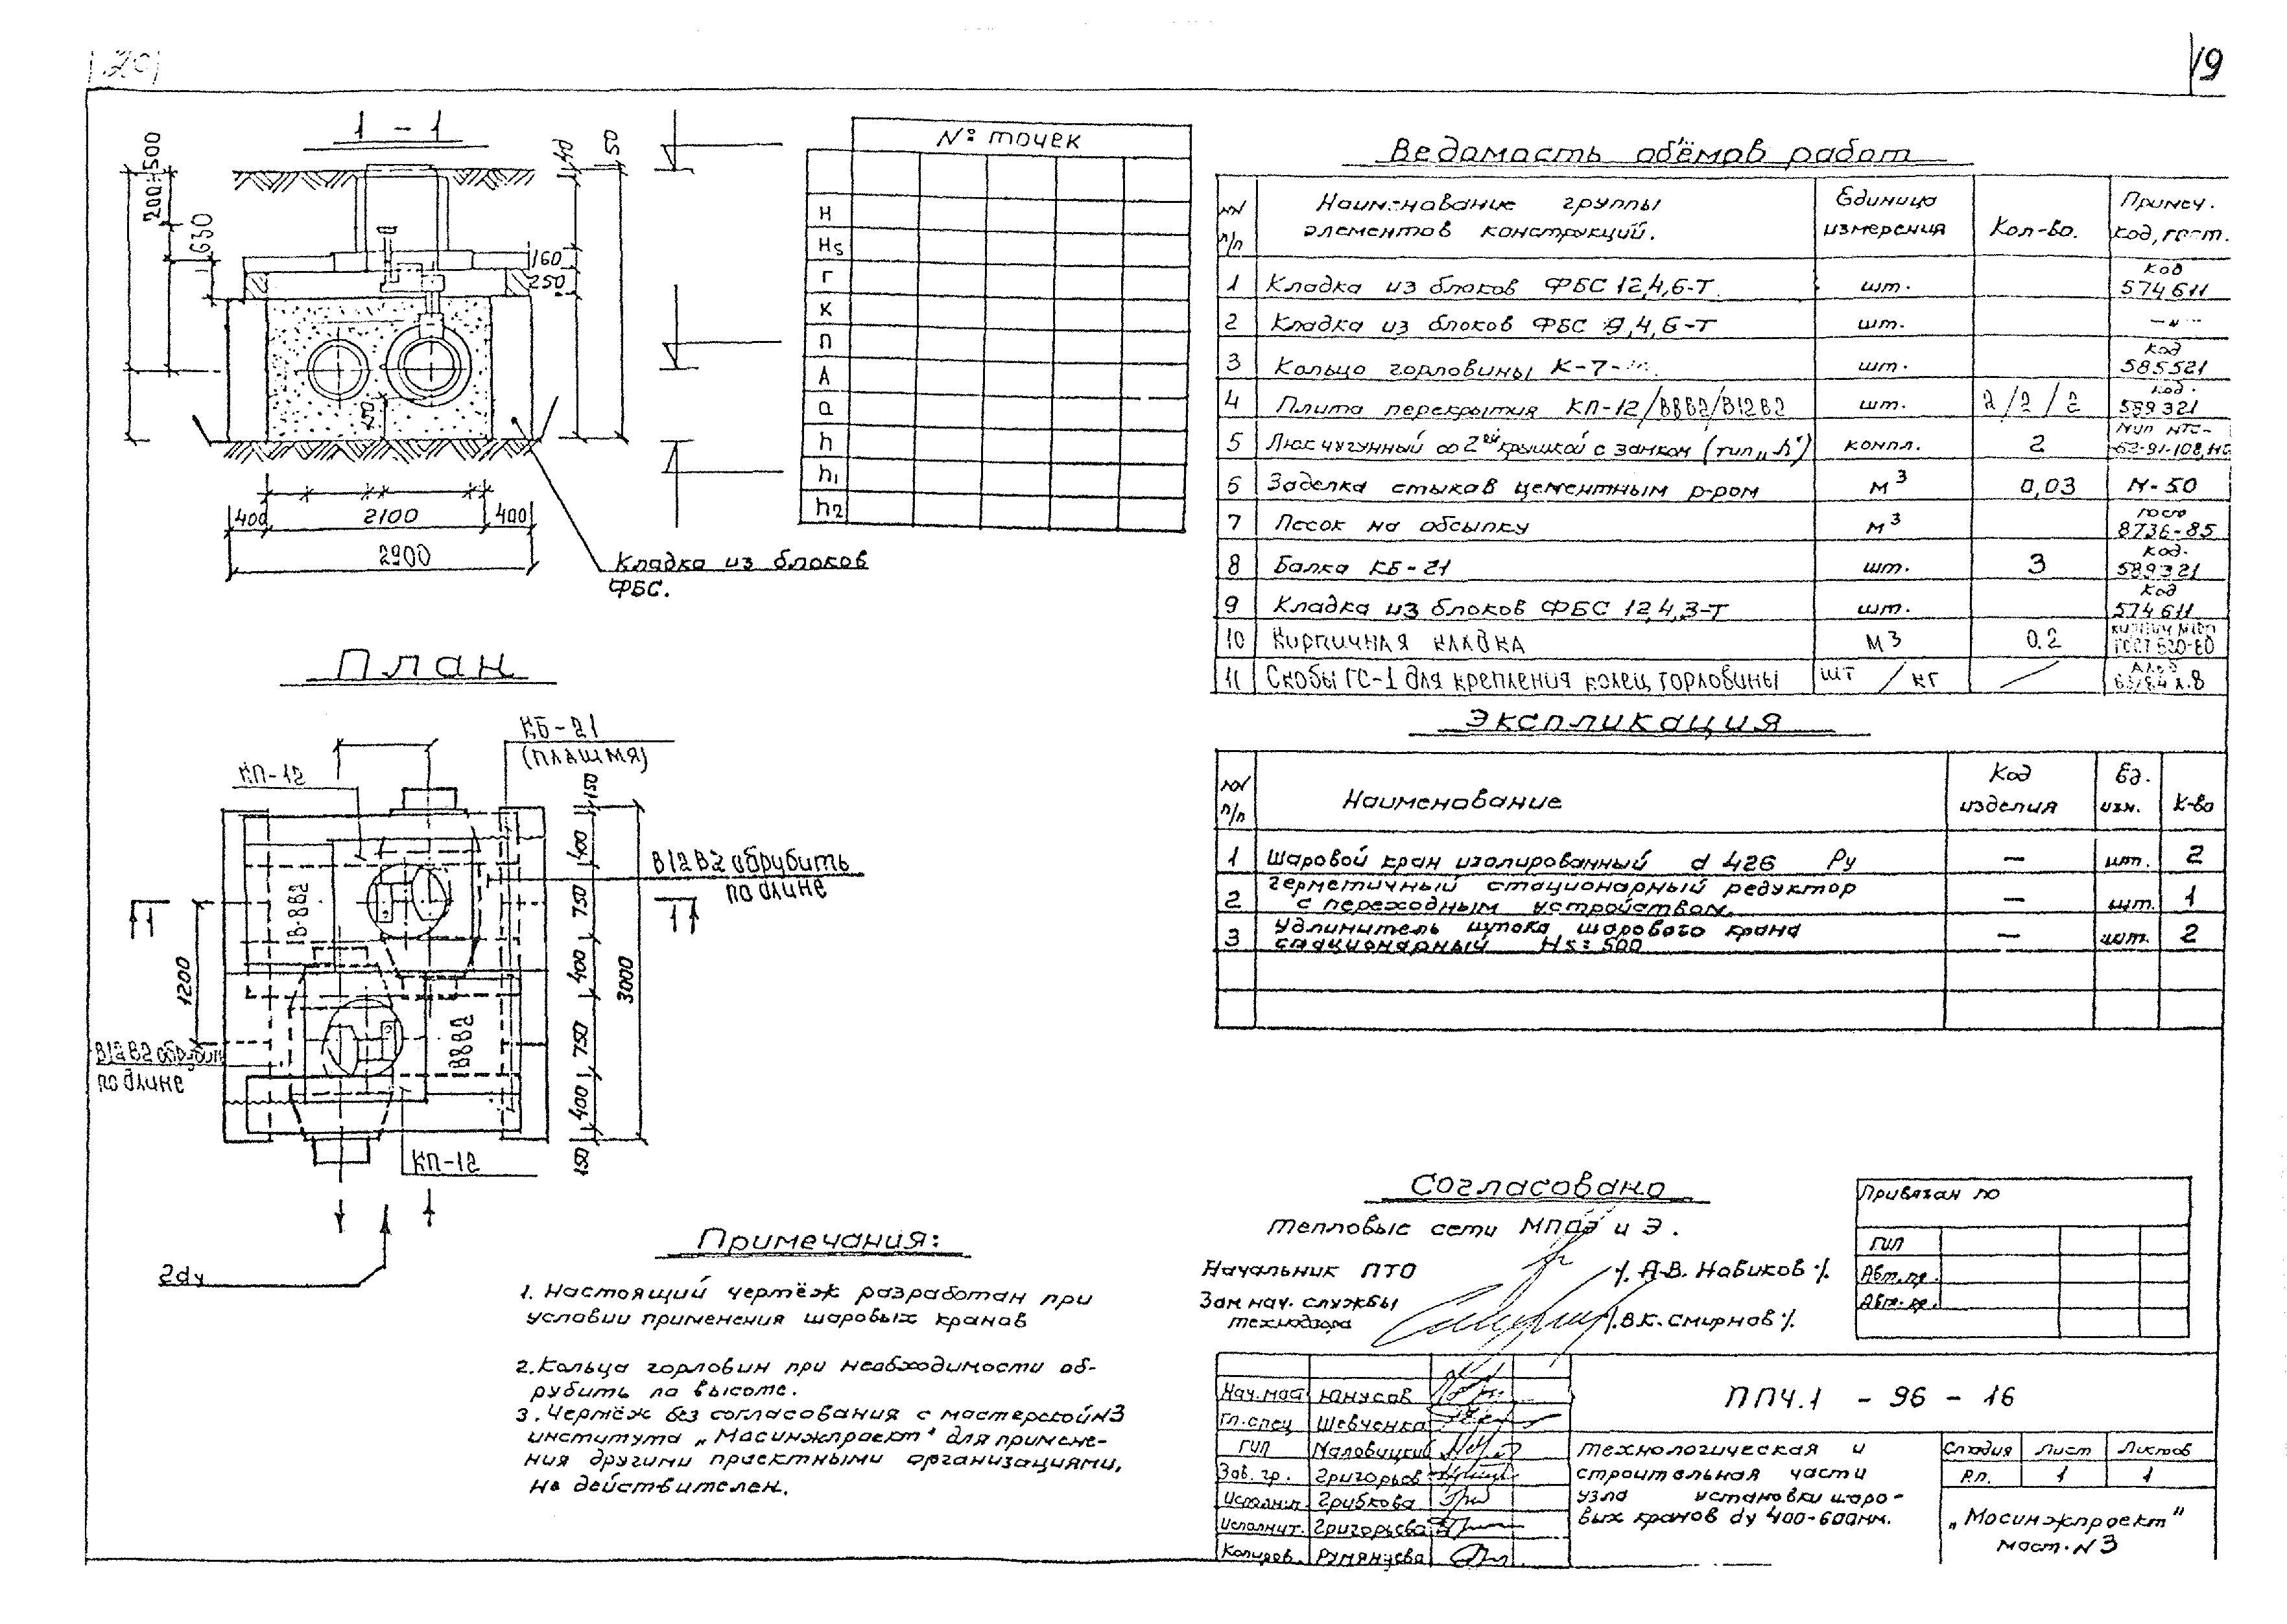 20
19
1 - 1
200÷500
630
140
50
160
250
400
2100
400
2900
Кладка из блоков
ФБС.
№ точек
H
Hs
Г
К
П
А
а
h
h1
h2
План
КБ-21
(плашмя)
КП-12
В12В2 обрубить
по длине
В8В2
В8В2
1
1
1200
150
400
750
400
750
400
150
3000
В12В2 обрубит
по длине
КП-12
2dу
Примечания:
1. Настоящий чертёж разработан при
условии применения шаровых кранов
2. Кольца горловин при необходимости об-
рубить по высоте.
3. Чертёж без согласования с мастерской N3
института „Мосинжпроект" для примене-
ния другими проектными организациями,
не действителен.
Ведомость объёмов работ
NN п/п
Наименование группы элементов конструкций.
Единица измерения
Кол-во.
Примеч. код, гост.
1 Кладка из блоков ФБС 12,4,6-Т шт. код 574611
2 Кладка из блоков ФБС 9,4,6-Т шт. —"—
3 Кольцо горловины К-7- шт. код 585521
4 Плита перекрытия КП-12/В8В2/В12В2 шт. 2/2/2 код. 589321
5 Люк чугунный со 2ой крышкой с замком (тип „Л") компл. 2 МИП МТС- 62-91-108,НО
6 Заделка стыков цементным р-ром м3 0,03 М-50
7 Песок на обсыпку м3 гост 8736-85
8 Балка КБ-21 шт. 3 код. 589321
9 Кладка из блоков ФБС 12,4,3-Т шт. код 574611
10 Кирпичная кладка м3 0.2 кирпич М100 ГОСТ 530-80
11 Скобы ГС-1 для крепления колец горловины шт / кг / л.8
Экспликация
NN п/п
Наименование
Код изделия
Ед. изм.
К-во
1 Шаровой кран изолированный d 426 Ру — шт. 2
2 герметичный стационарный редуктор с переходным устройством. — шт. 1
3 Удлинитель штока шарового крана стационарный Hs=500 — шт. 2
Согласовано
тепловые сети МПОЭ и Э.
Начальник ПТО /. А.В. Новиков ./.
Зам нач. службы
технадзора /.В.К. Смирнов ./.
Привязан по
ГИП
Авт.пр.
Авт.пр.
Нач.маст Юнусов
Гл.спец Шевченко
ГИП Маловицкий
Зав. гр. Григорьев
Исполнил Грибкова
Исполнит. Григорьева
Копиров. Румянцева
ППЧ.1 - 96 - 16
технологическая и
строительная части
узла установки шаро-
вых кранов dу 400-600мм.
Стадия Лист Листов
Р.п. 1 1
„Мосинжпроект"
маст. N 3